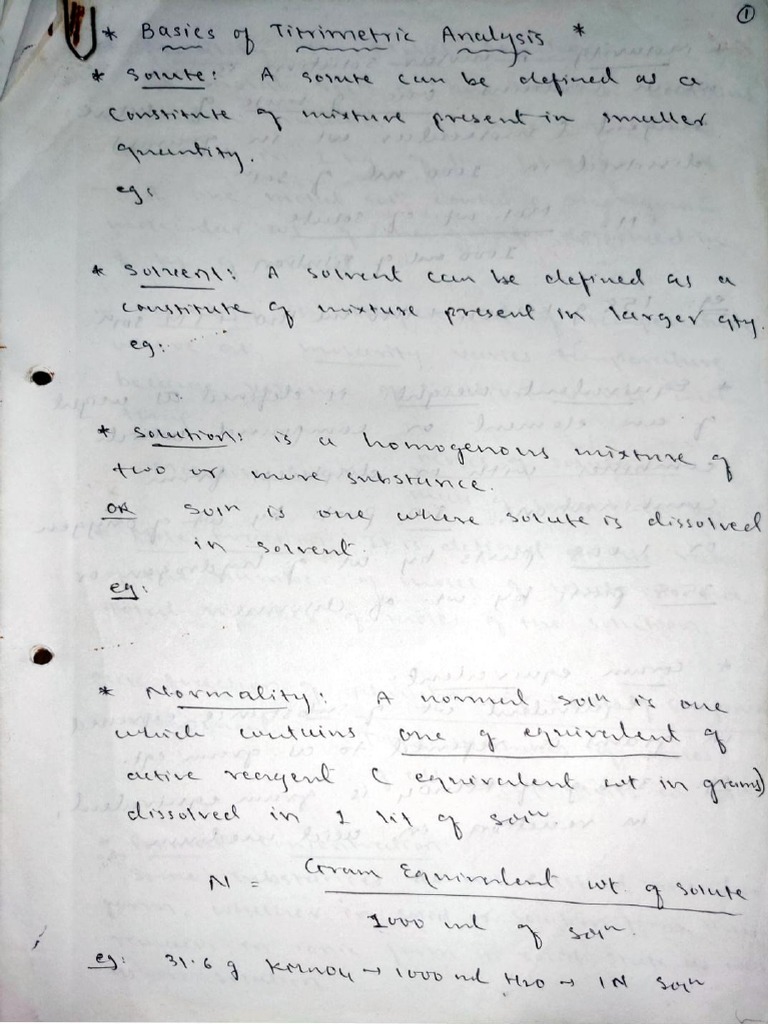 ①
* Basics of Titrimetric Analysis *
* Solute: A solute can be defined as a
constitute of mixture present in smaller
quantity.
eg:
* Solvent: A solvent can be defined as a
constitute of mixture present in larger qty.
eg:
* Solution: is a homogenous mixture of
two or more substance.
OR soln is one where solute is dissolved
in solvent.
eg:
* Normality: A normal soln is one
which contains one g equivalent of
active reagent ( equivalent wt in grams)
dissolved in 1 lit of soln
N = Gram Equivalent wt. of solute
1000 ml of soln.
eg: 31.6 g KMnO4 → 1000 ml H2O → 1N soln